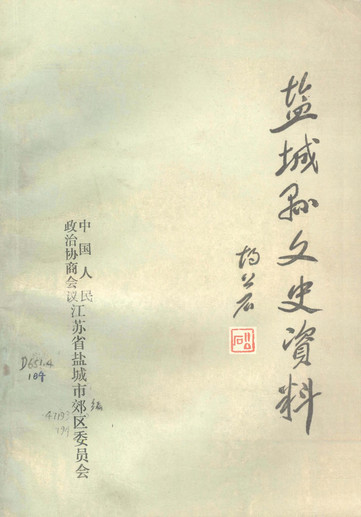 盐城县文史资料
中国人民
政治协商会议
江苏省盐城市郊区委员会
编
D651.4
104